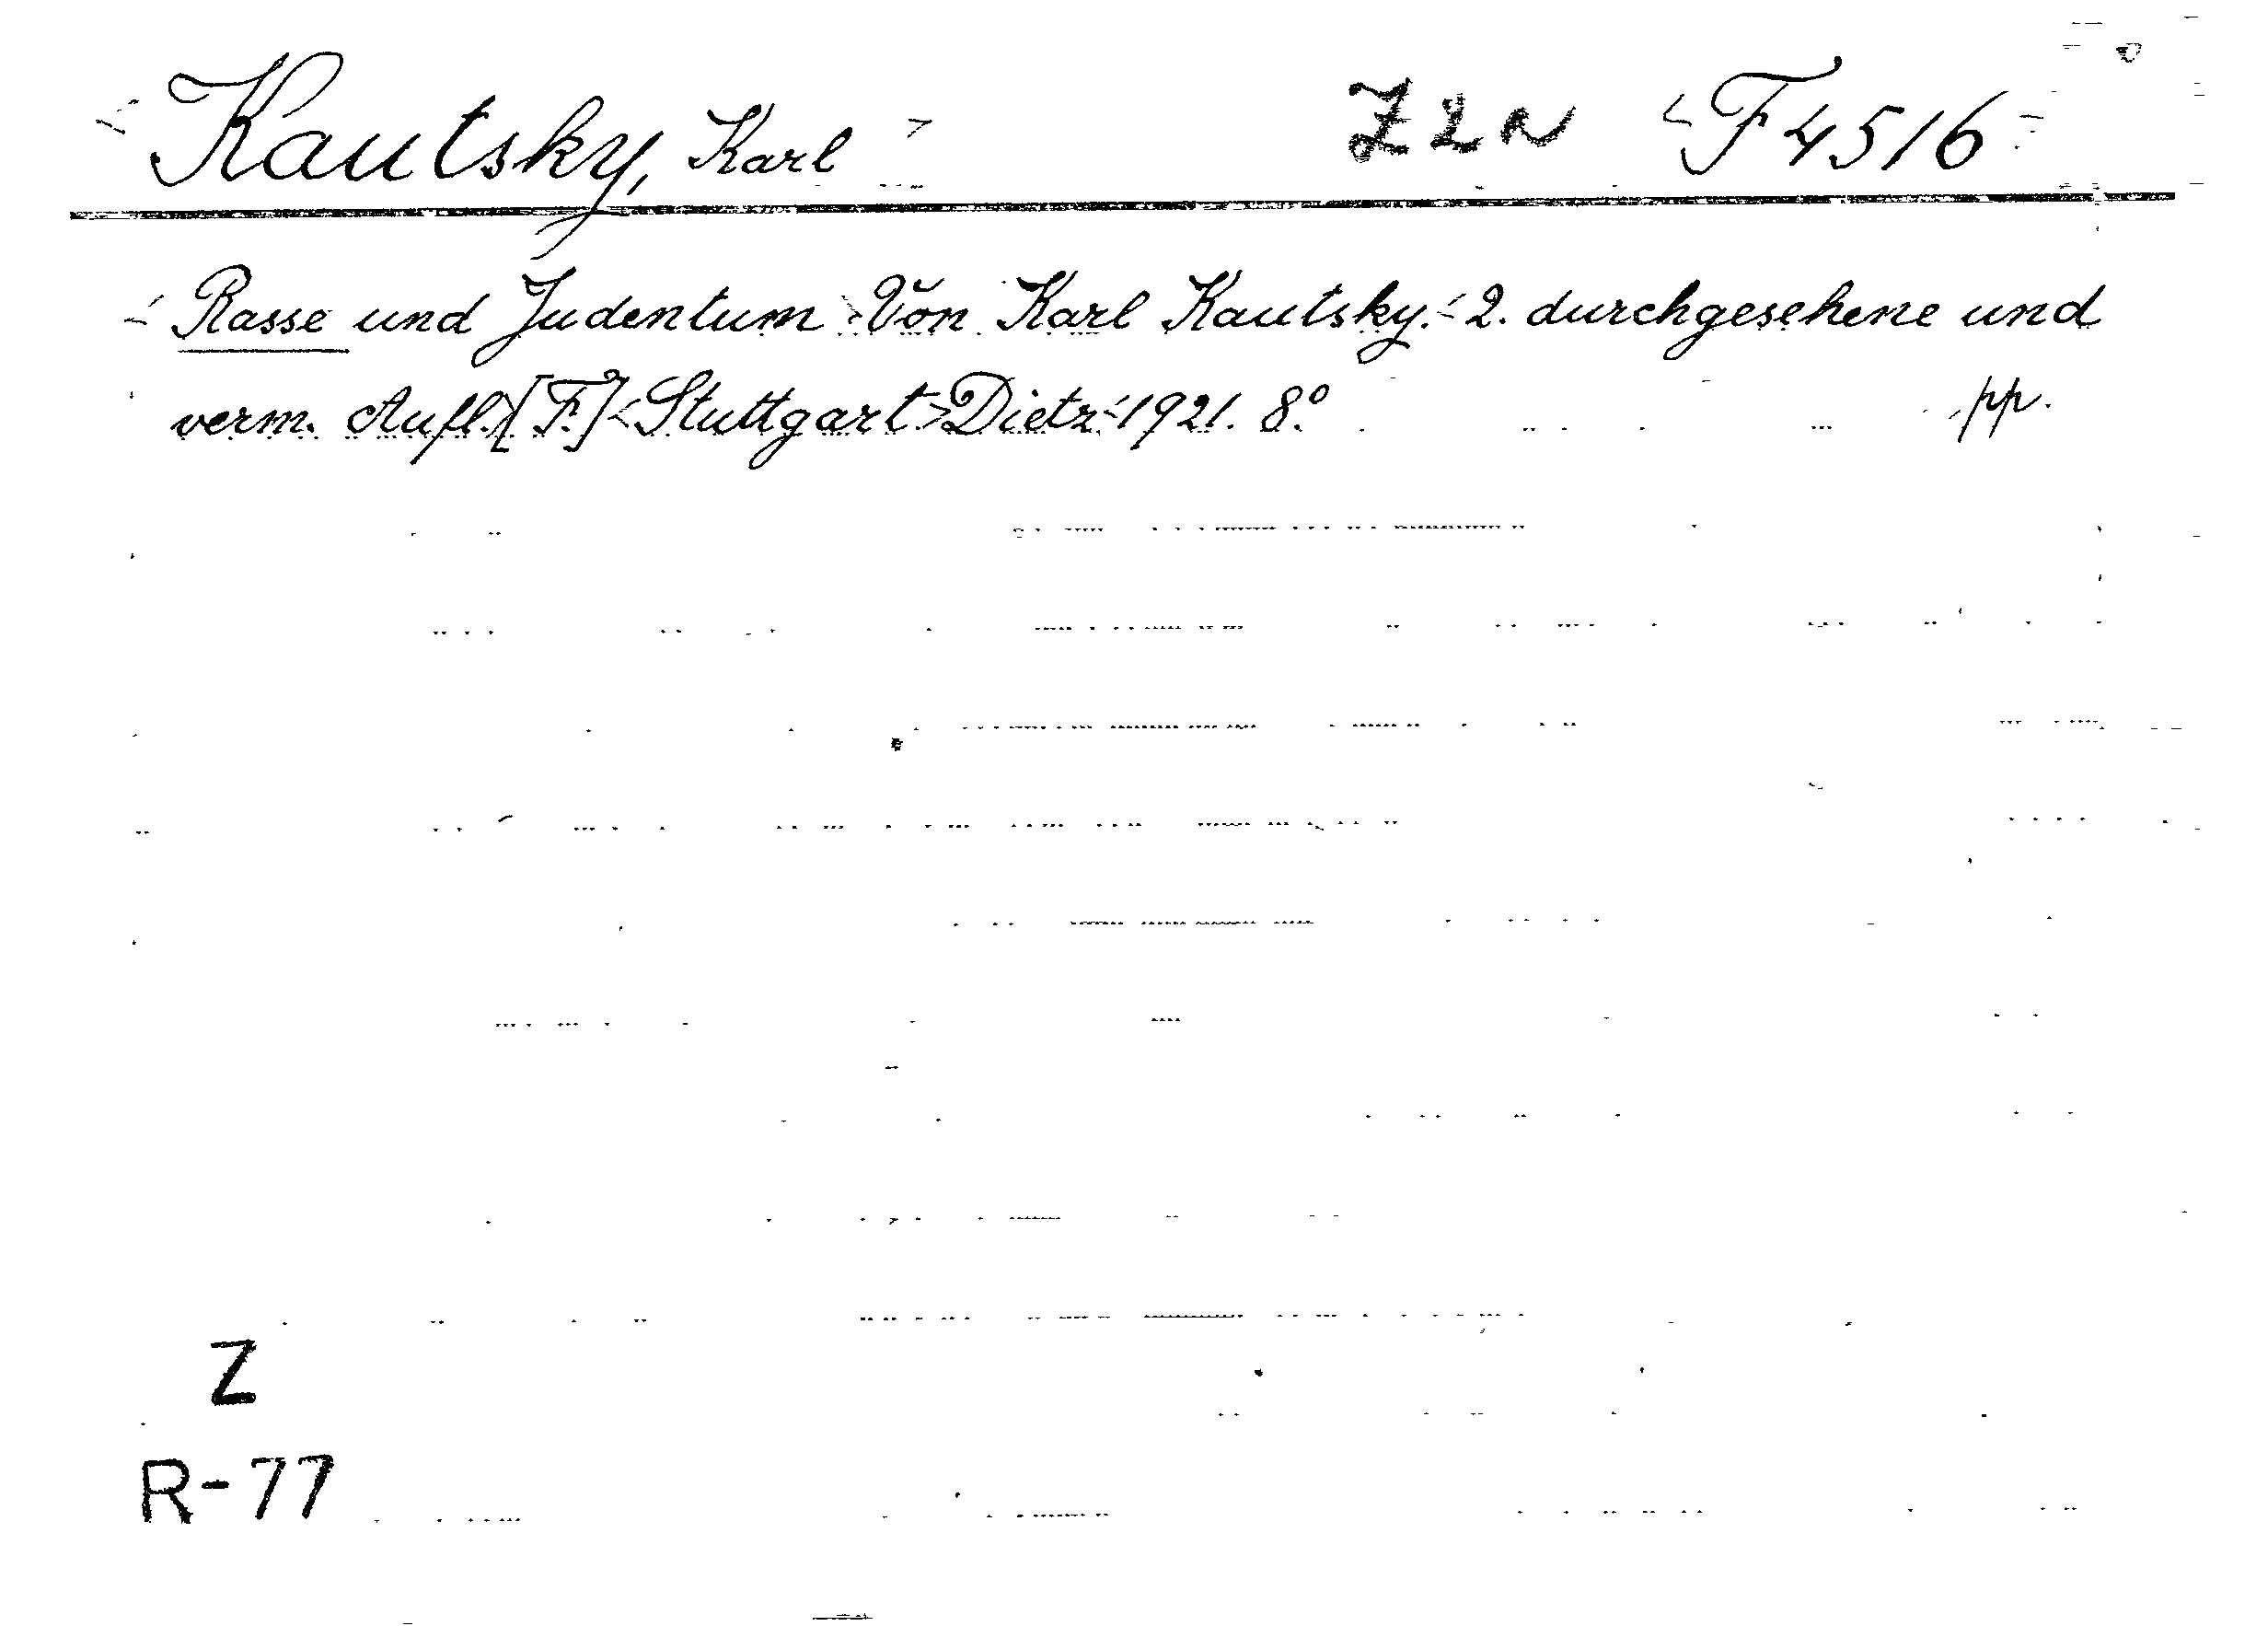 Kautsky, Karl Z2N F4516
Rasse und Judentum Von Karl Kautsky. 2. durchgesehene und
verm. Aufl. [F.] Stuttgart Dietz 1921. 8.° pp.
Z
R-77